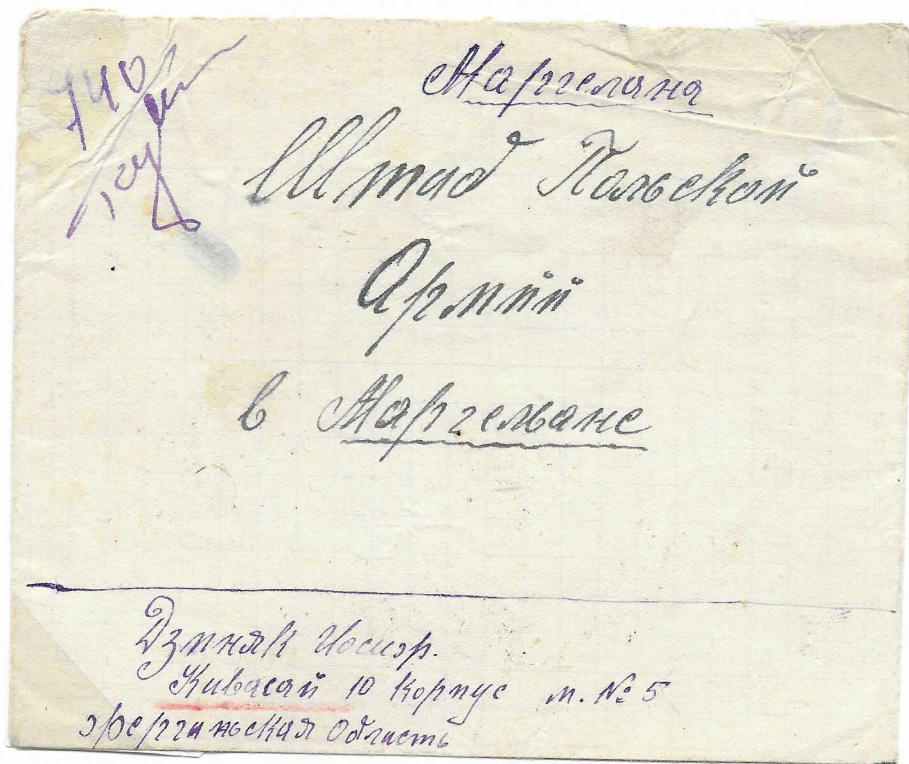 740
Маргелана
Штаб Польской
Армий
в Маргелане
Дзиняк Иосиф.
Кивасай 10 корпус м. № 5
Ферганьская Область